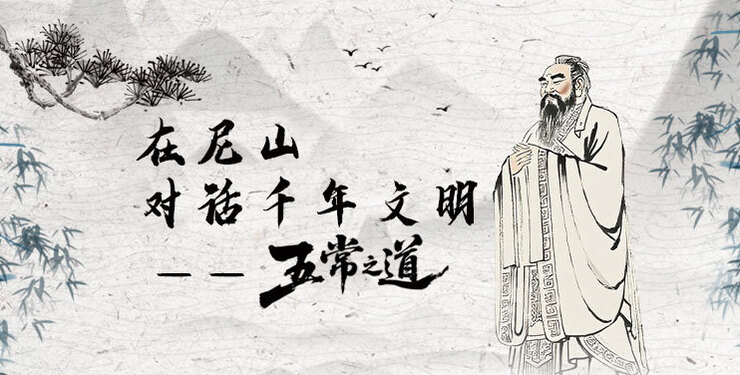 在尼山
对话千年文明
——五常之道